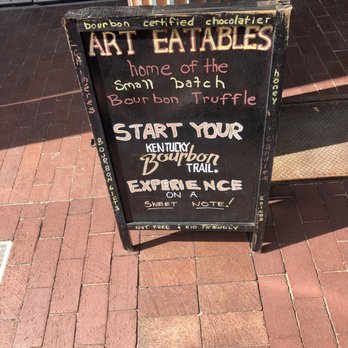 bourbon certified chocolatier
ART EATABLES
home of the
Small batch
Bourbon Truffle
START YOUR
KENTUCKY
Bourbon
TRAIL®
EXPERIENCE
ON A
SWEET NOTE!
NUT FREE & KID FRIENDLY
BOURBON
honey